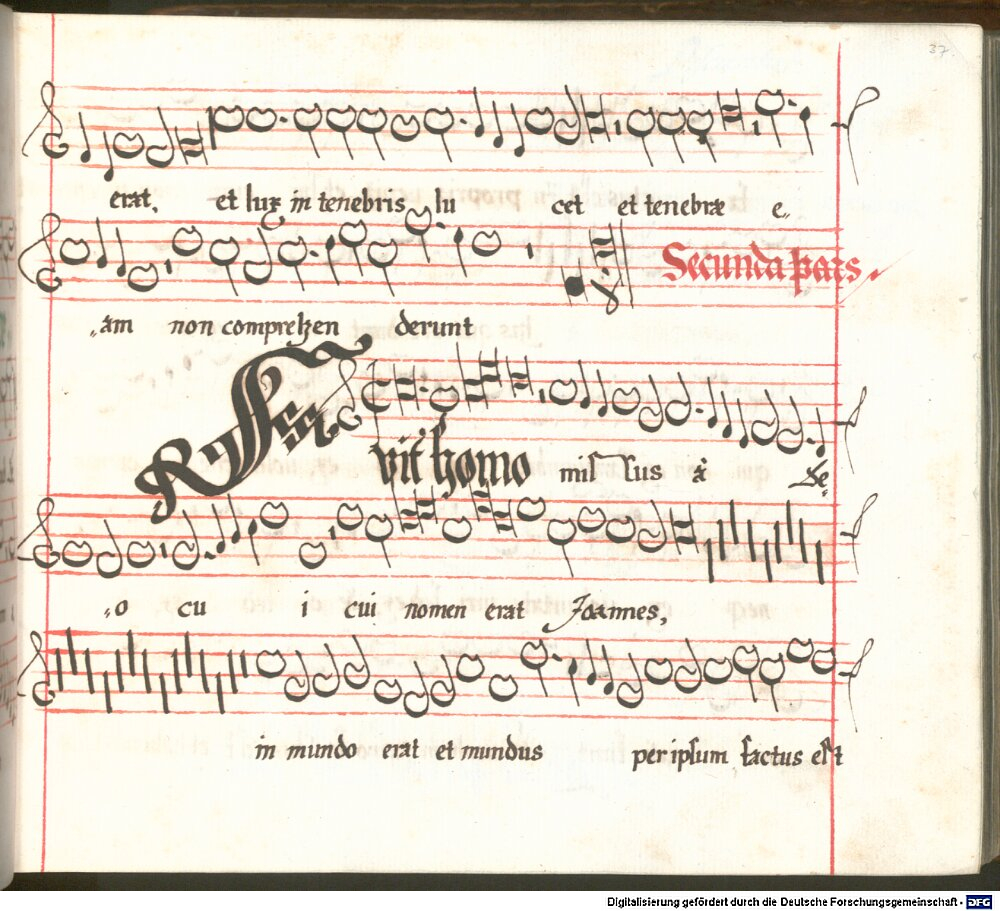 37.
erat, et lux in tenebris lu cet et tenebræ e„
„am non comprehen derunt
Secunda pars.
vit homo mis sus à De„
„o cu i cui nomen erat Joannes,
in mundo erat et mundus per ipsum factus est
Digitalisierung gefördert durch die Deutsche Forschungsgemeinschaft - DFG